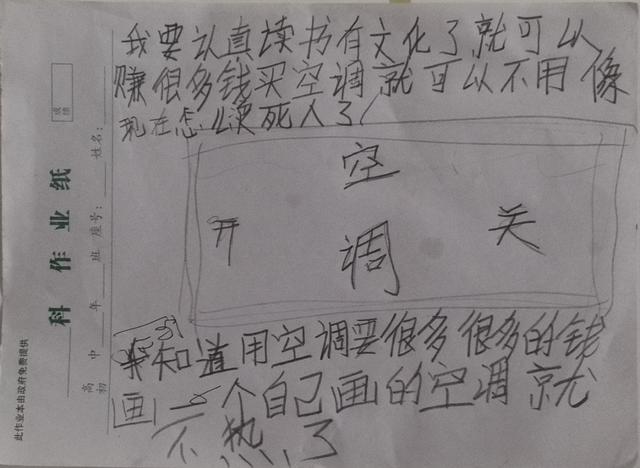 我要认真读书有文化了就可以
赚很多钱买空调就可以不用像
现在怎么烫死人了
空
开 调 关
知道用空调要很多很多的钱
画一个自己画的空调就
不热了
成绩
姓名:
座号:
班
年
中
高
初
科作业纸
此作业本由政府免费提供